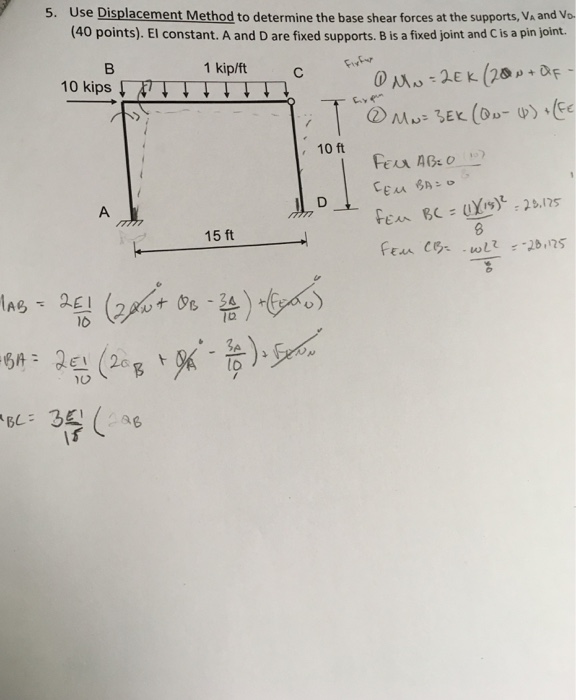 5. Use Displacement Method to determine the base shear forces at the supports, VA and VD.
(40 points). EI constant. A and D are fixed supports. B is a fixed joint and C is a pin joint.
B
1 kip/ft
C
10 kips
10 ft
A
D
15 ft
① MN = 2EK (2θN + θF -
② MN = 3EK (θN - ψ) + (FE
FEM AB = 0
FEM BA = 0
FEM BC = (1)(15)² / 8 = 28.125
FEM CB = -wL² / 8 = -28.125
AB = 2EI/10 (2θN + θB - 3Δ/10) + (FEMN)
BA = 2EI/10 (2θB + θA - 3Δ/10) + FEMN
BC = 3EI/15 ( θB